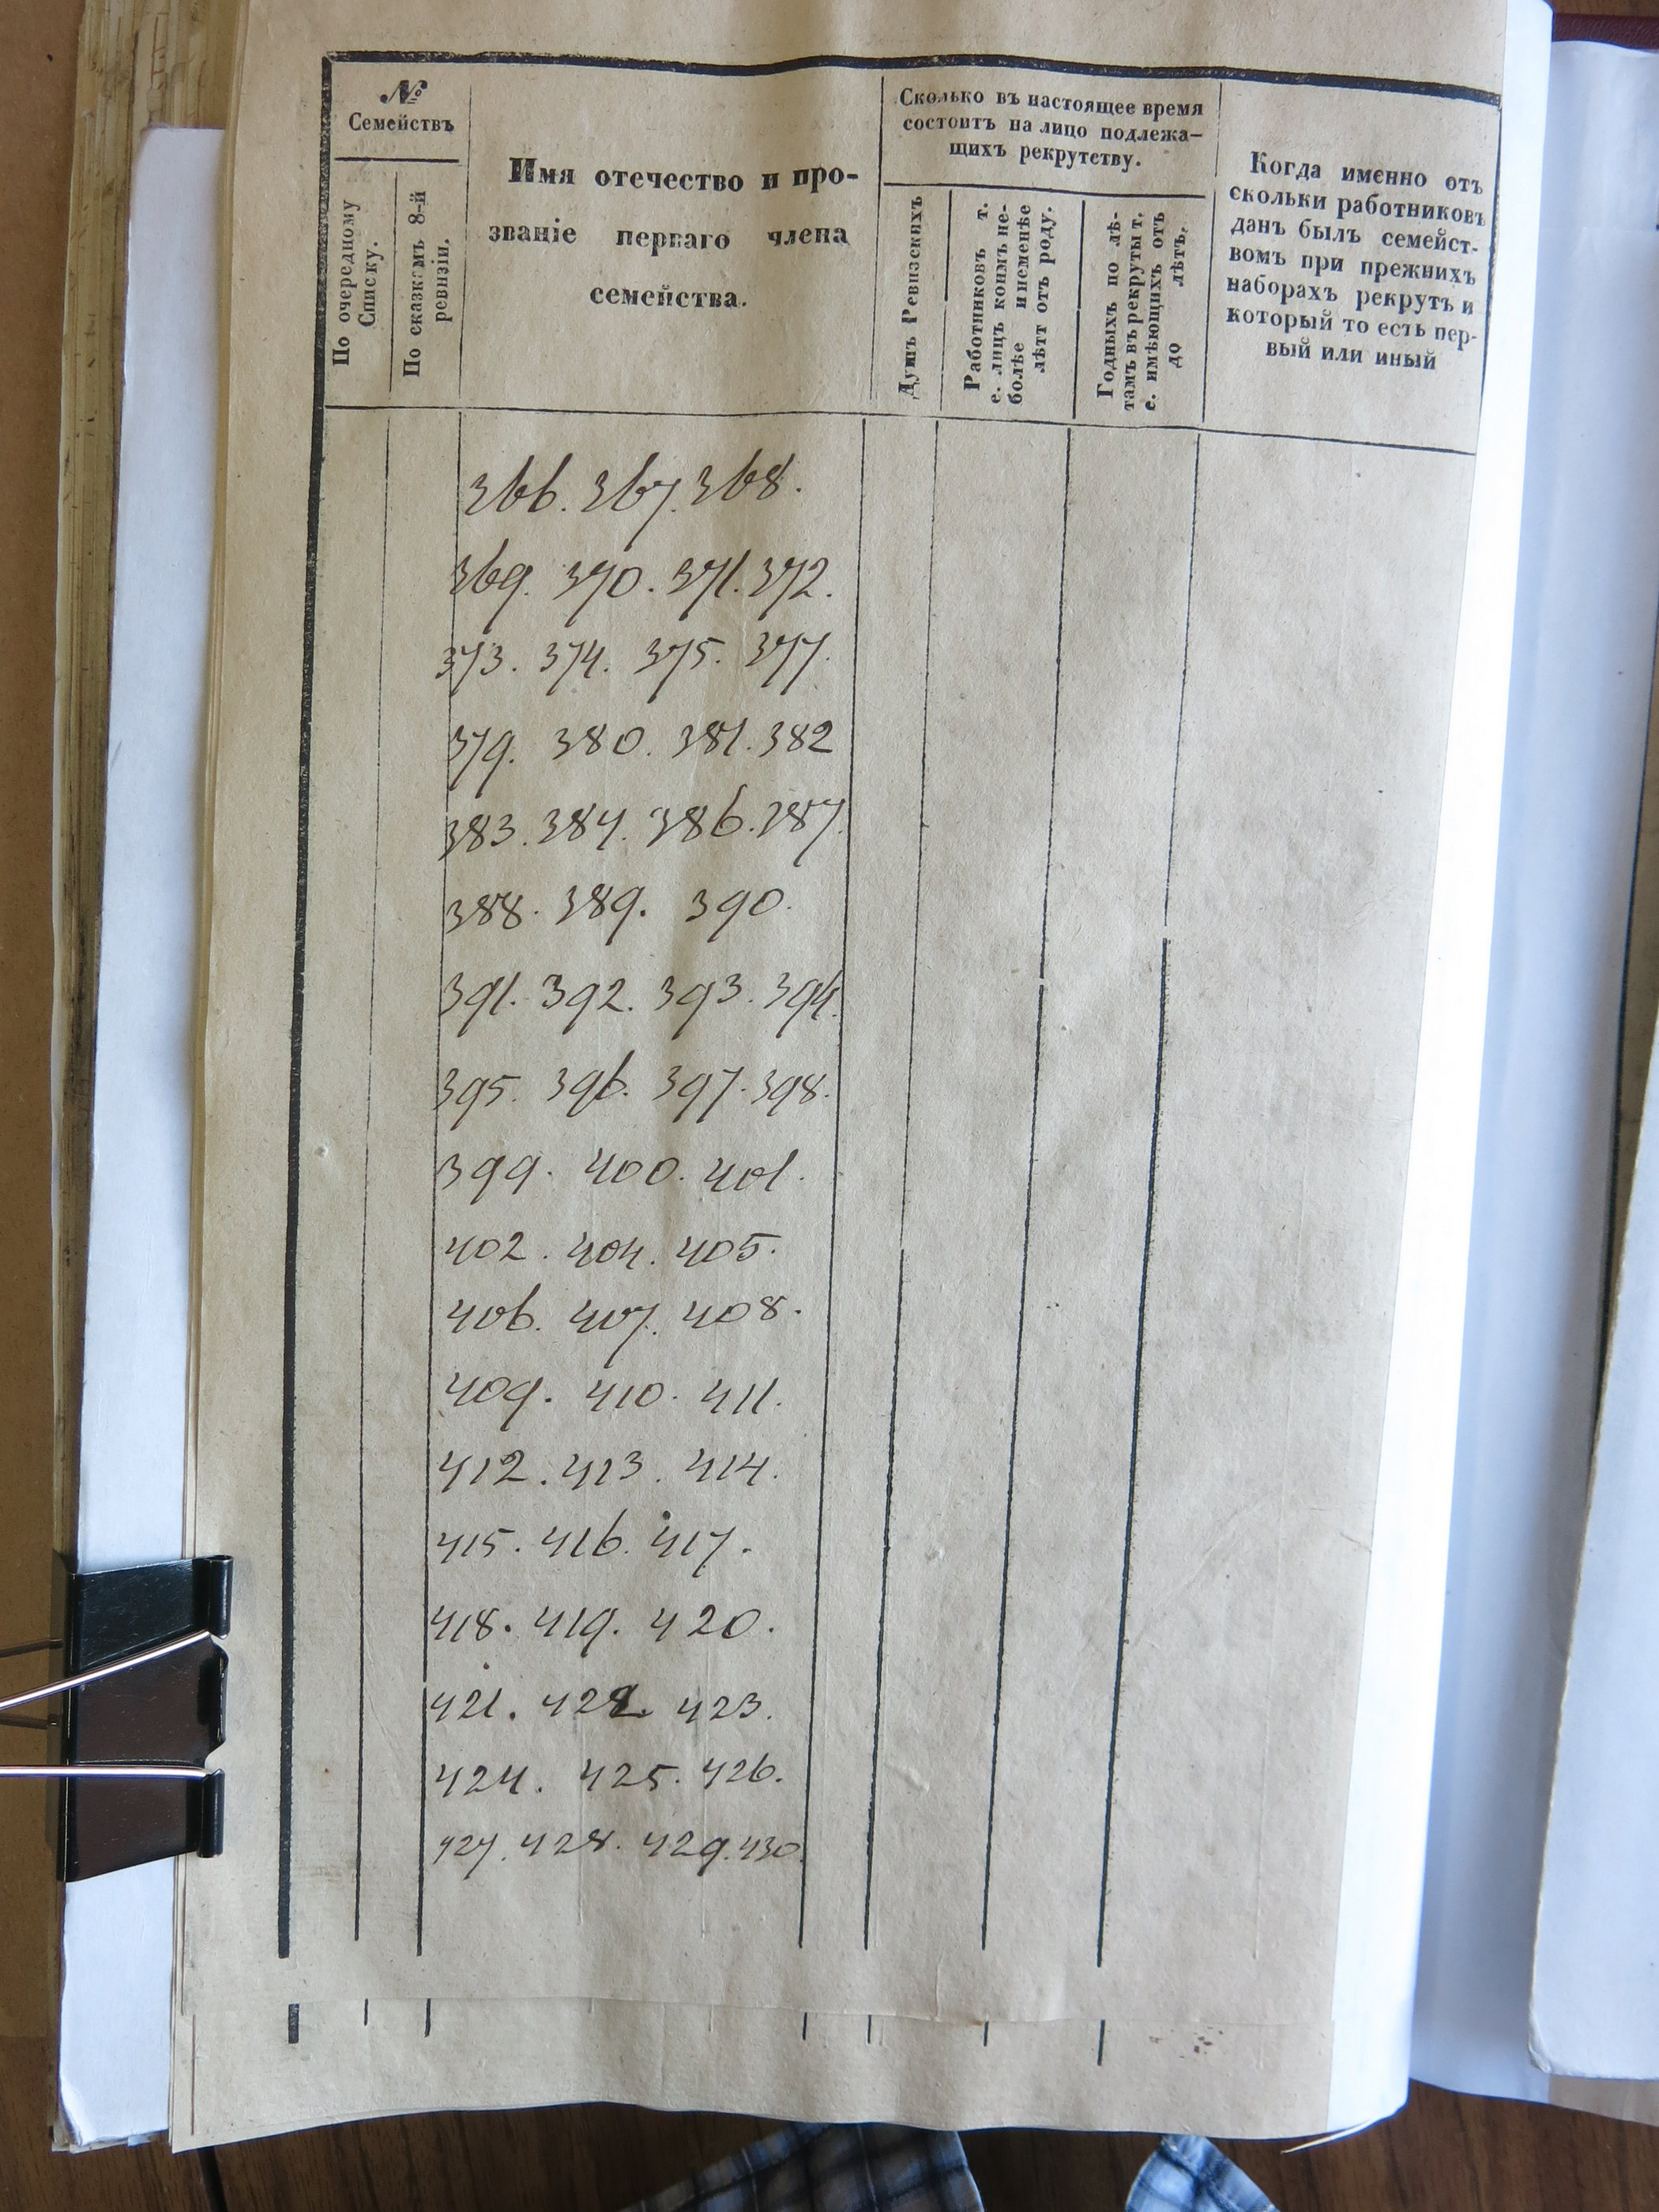 №
Семействъ
По очередному
Списку.
По сказкамъ 8-й
ревизіи.
Имя отечество и про-
званіе перваго члена
семейства.
Сколько въ настоящее время
состоитъ на лицо подлежа-
щихъ рекрутству.
Душъ Ревизскихъ
Работниковъ т.
е. лицъ коимъ не-
болѣе и неменѣе
лѣтъ отъ роду.
Годныхъ по лѣ-
тамъ въ рекруты т.
е. имѣющихъ отъ
до лѣтъ.
Когда именно отъ
скольки работниковъ
данъ былъ семейст-
вомъ при прежнихъ
наборахъ рекрутъ и
который то есть пер-
вый или иный
366. 367. 368.
369. 370. 371. 372.
373. 374. 375. 377.
379. 380. 381. 382
383. 384. 386. 387.
388. 389. 390.
391. 392. 393. 394.
395. 396. 397. 398.
399. 400. 401.
402. 404. 405.
406. 407. 408.
409. 410. 411.
412. 413. 414.
415. 416. 417.
418. 419. 420.
421. 422. 423.
424. 425. 426.
427. 428. 429. 430.